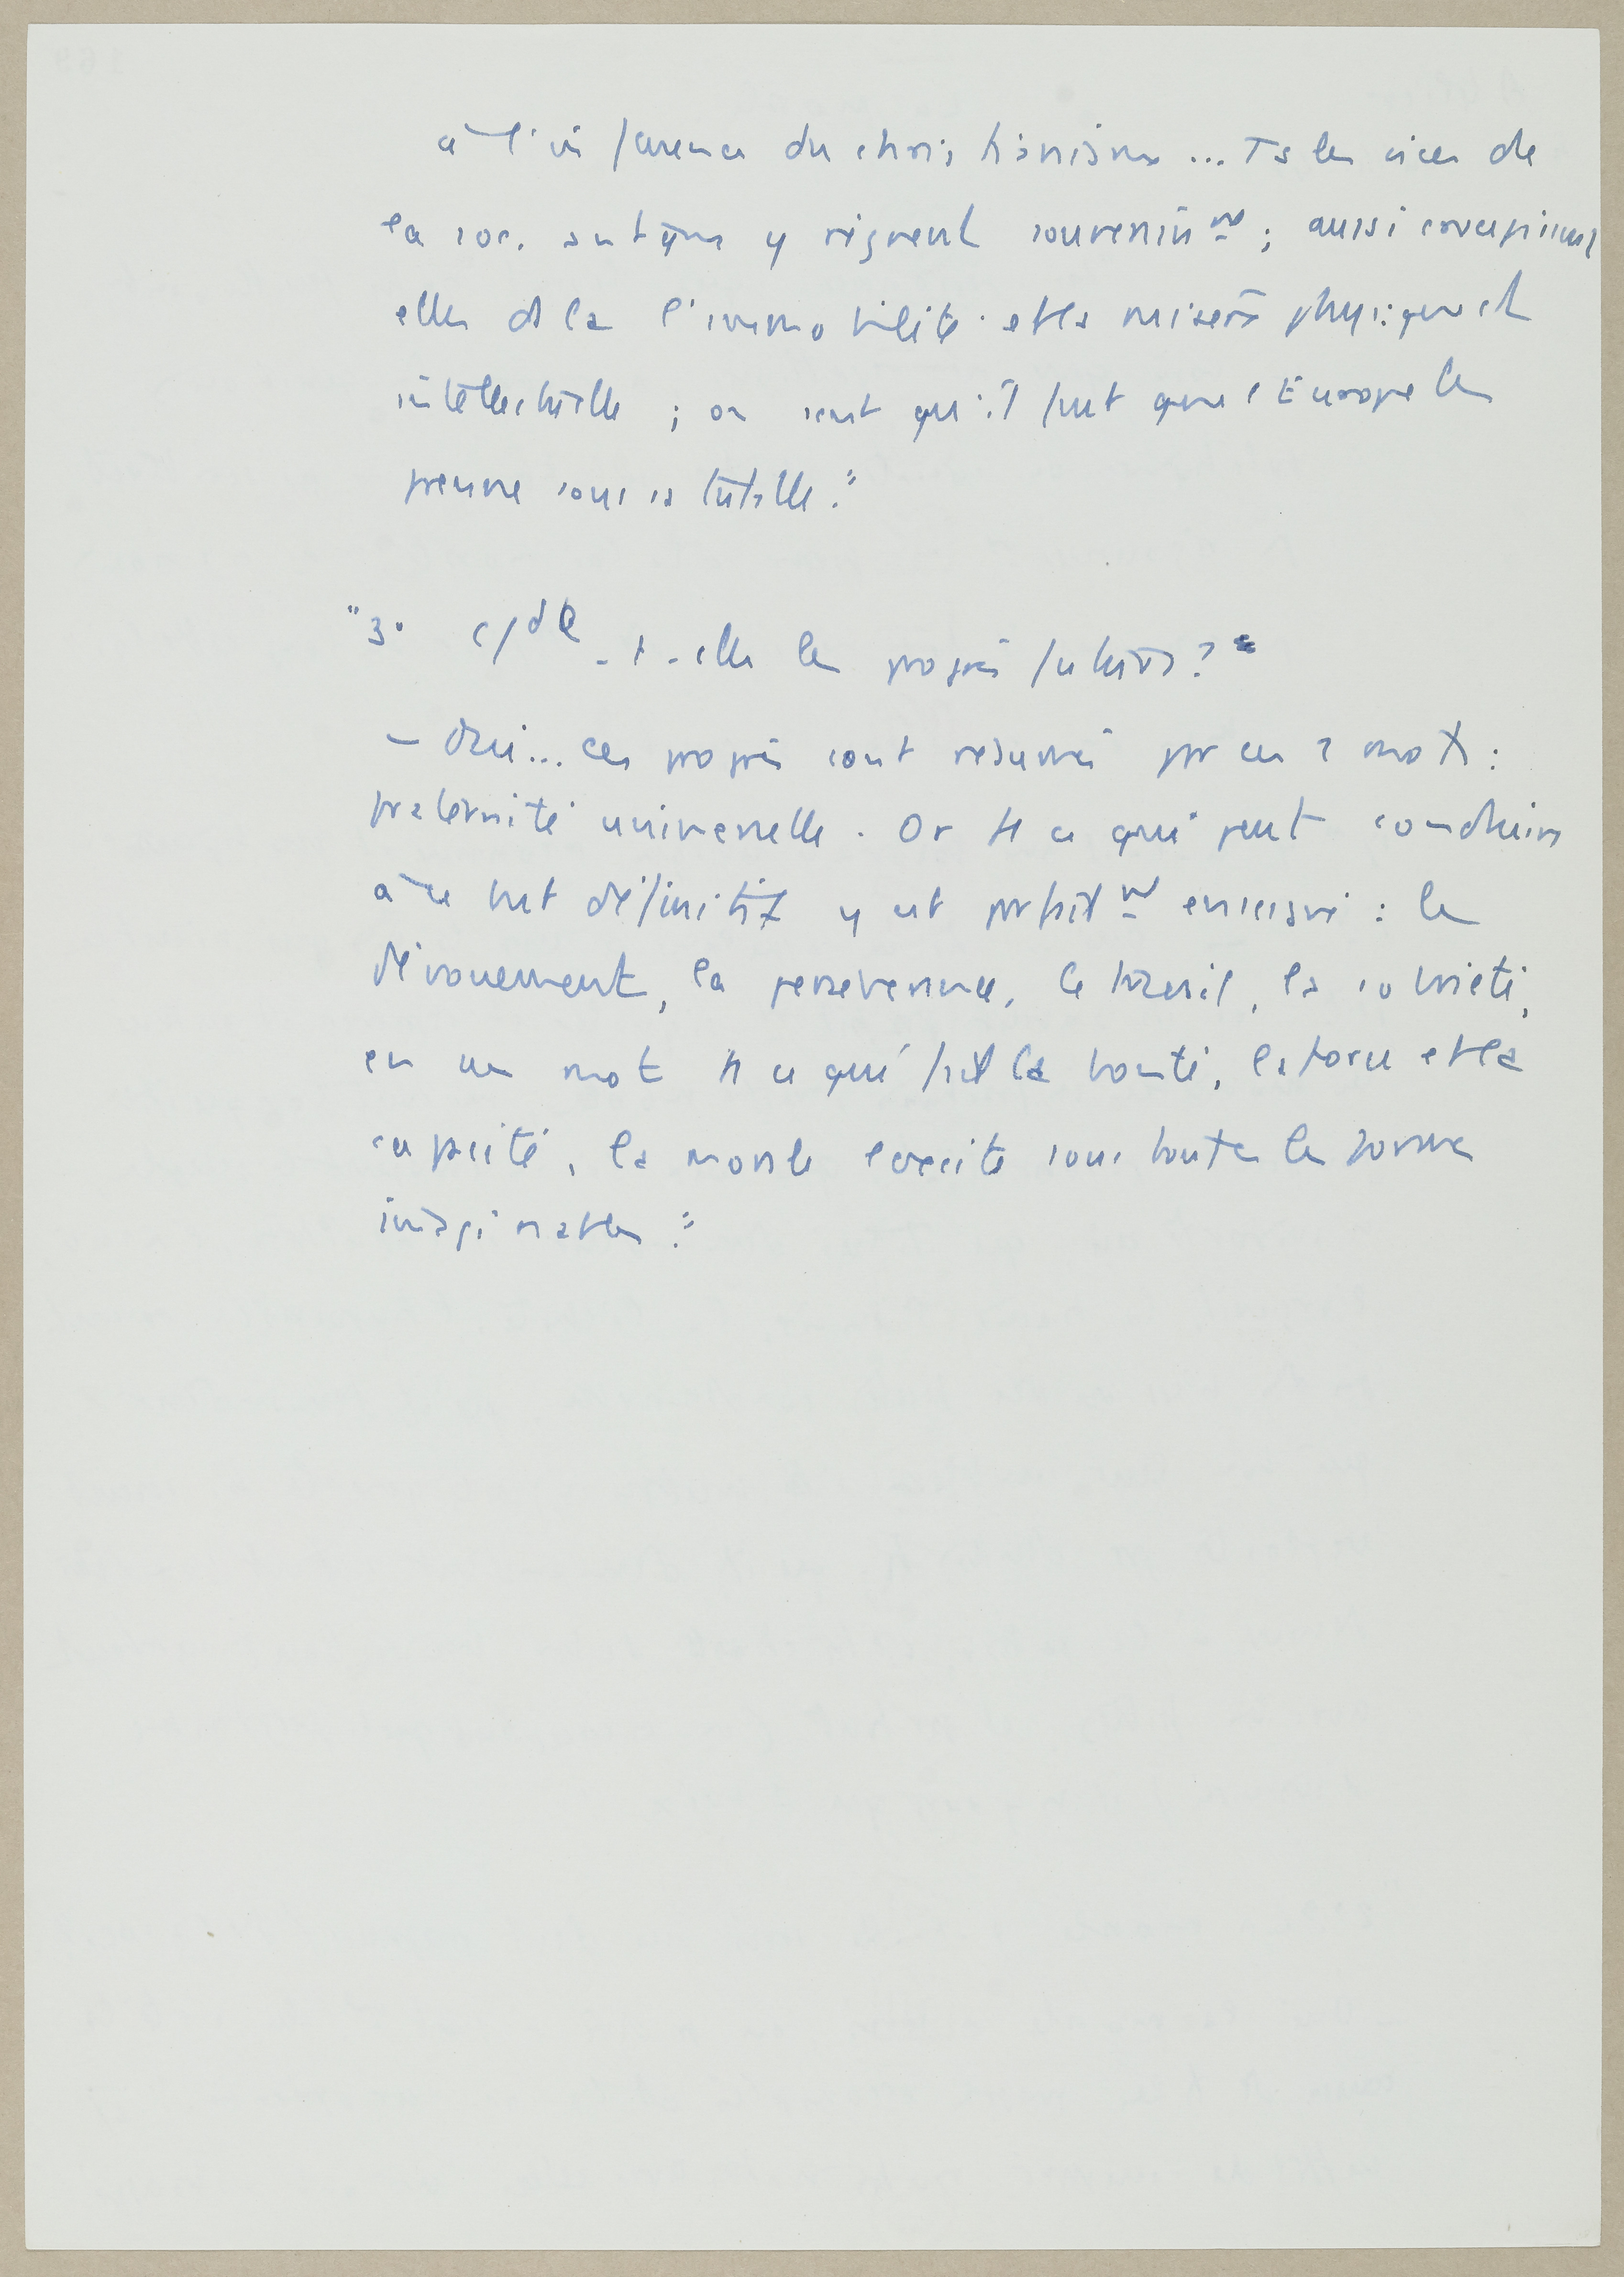 à l'influence du christianisme... Ts les vices de
la soc. antique y règnent souverainmt ; aussi croupissent
elles ds la l'immobilité et la misère physique et
intellectuelle ; on sent qu'il faut que l'Europe les
prenne sous sa tutelle."
"3° -t-elle les progrès futurs ?"
– Oui... ces progrès sont résumés par ces 2 mots :
fraternité universelle. Or tt ce qui peut conduire
à ce but définitif y est parfaitmt enseigné : le
dévouement, la persévérance, le travail, la sobriété,
en un mot tt ce qui fait la bonté, la force et la
capacité, la morale sous toutes les formes
imaginables."